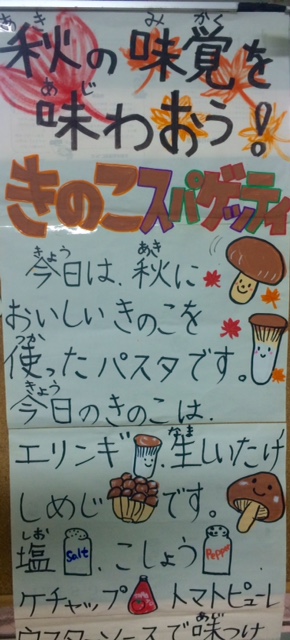 秋の味覚を
味わおう!
きのこスパゲッティ
今日は、秋に
おいしいきのこを
使ったパスタです。
今日のきのこは、
エリンギ、生しいたけ
しめじです。
塩 Salt、こしょう Pepper
ケチャップ トマトピューレ
ウスターソースで味つけ